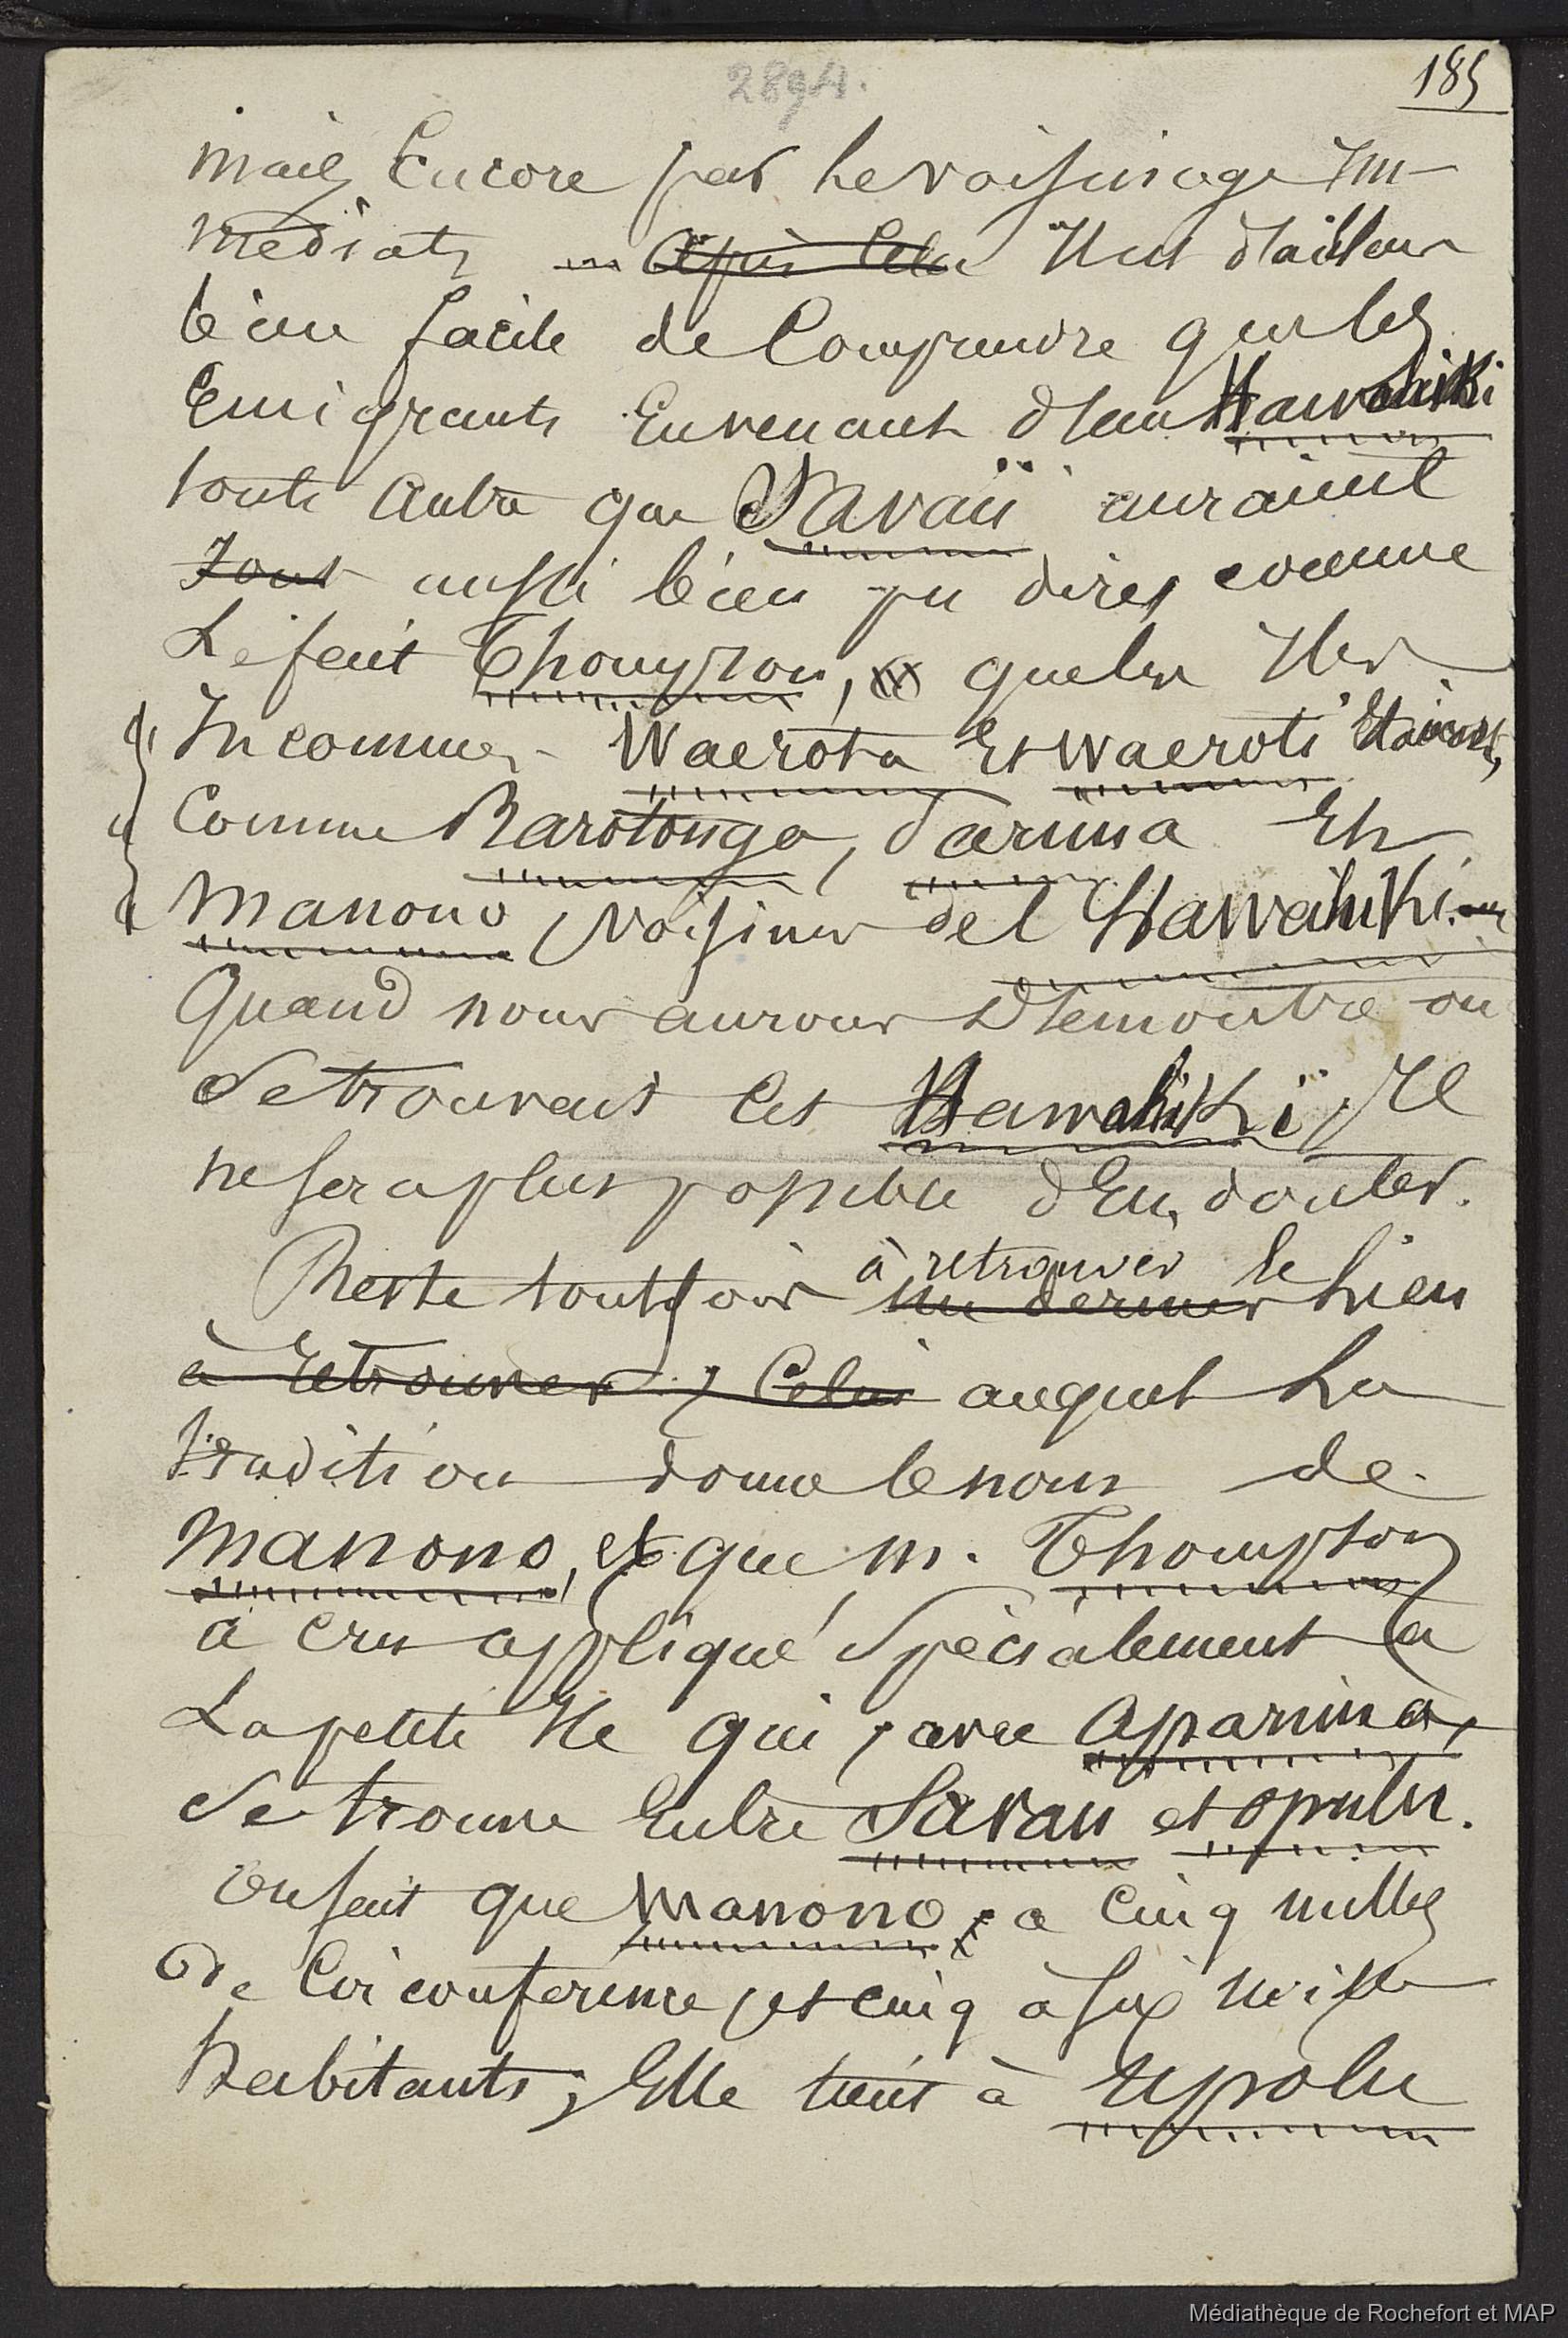 2894.
185
mais Encore par le voisinage Im-
médiat, - Après Cela Il est d'ailleurs
bien facile de Comprendre que les
Emigrants En venant d'un Hawaïki
toute autre que Savaii auraient
tout aussi bien pu dire, comme
Le fait Thompson, que les Iles
Inconnues - Waerota Et Waeroti Etaient,
Comme Rarotonga, Parima Et
Manono, voisines de l'Hawaïki. -
Quand nous aurons Démontré où
Se trouvait Cet Hawaïki, Il
ne sera plus possible d'En douter.
Reste toutefois à retrouver le
un dernier lien
à retrouver, Celui auquel La
tradition donne le nom de
Manono, et que M. Thompson
a cru appliqué Spécialement à
La petite Ile qui, avec Aparima,
Se trouve Entre Savaii et Opulu.
On sait que Manono a Cinq milles
de Circonférence, et cinq à six mille
habitants; Elle tient à Upolu
Médiathèque de Rochefort et MAP